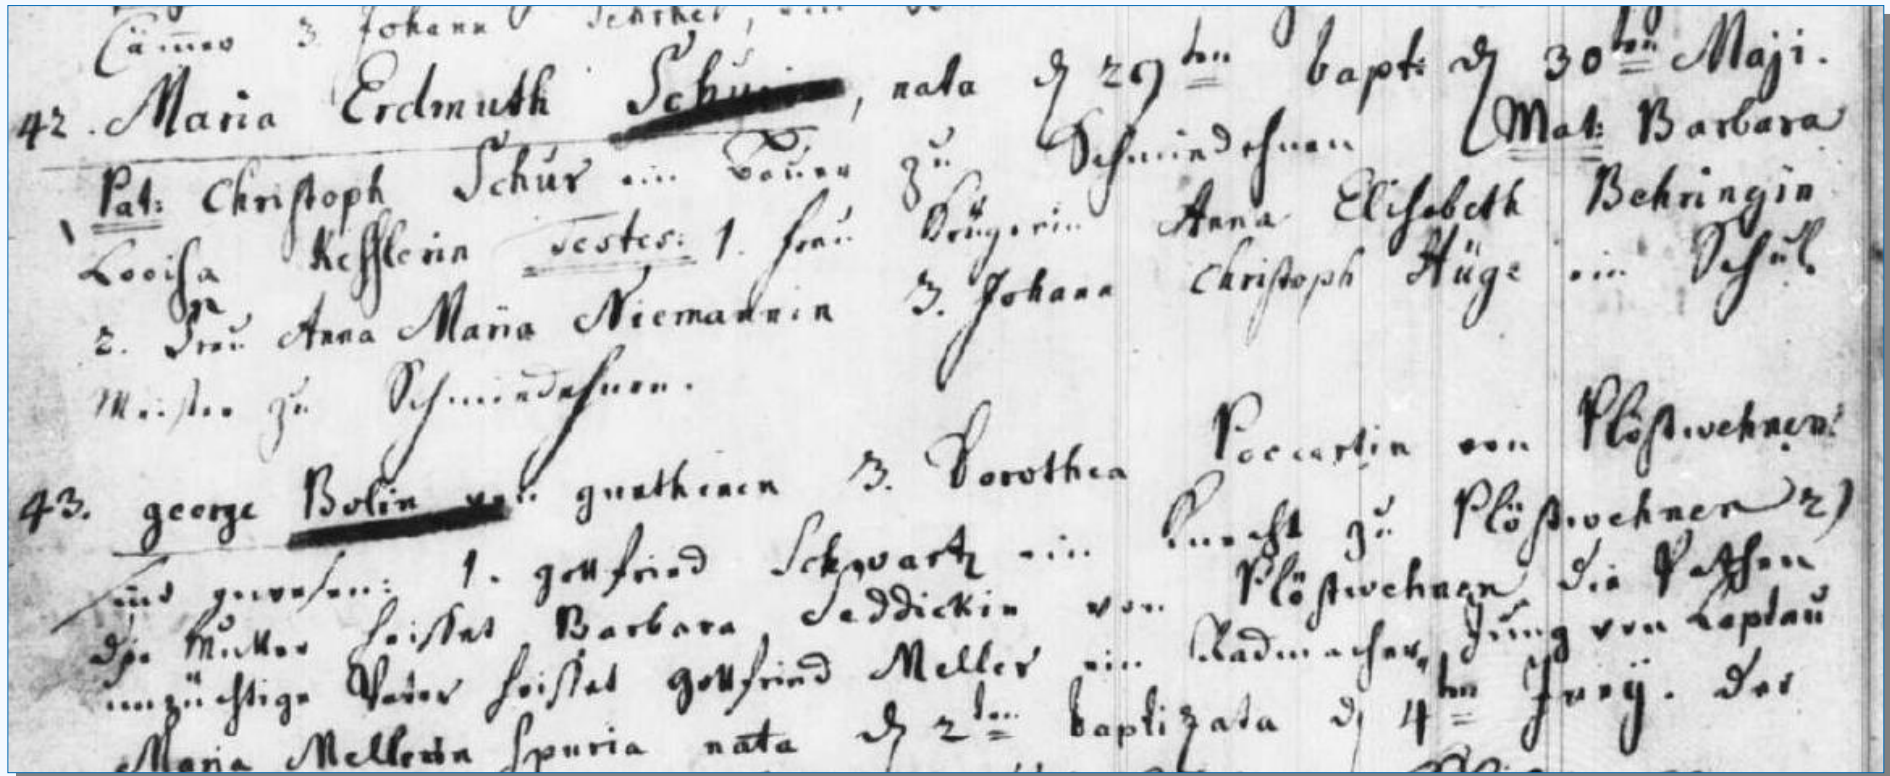 Cämmer 3. Johann
42. Maria Erdmuth Schurin, nata d 29ten bapt: d 30ten Maji.
Pat: Christoph Schur ein Bauer zu Schmiedehnen Mat: Barbara
Looisa Kesslerin testes: 1. frau Krügerin Anna Elisabeth Behringin
2. Frau Anna Maria Niemannin 3. Johann Christoph Hüge ein Schul
Meister zu Schmiedehnen.
43. george Bolin von gunthenen 3. Dorothea Poccartin von Plöstwehnen:
sind gewesen: 1. gottfried Schwartz ein Knecht zu Plöstwehnen 2)
die Mutter heisset Barbara Seddickin von Plöstwehnen die Pathen
unzüchtige Vater heisset gottfried Meller ein Radmacher Jung von Leptau
Maria Mellerin spuria nata d 2ten baptizata d 4ten Junÿ. Der